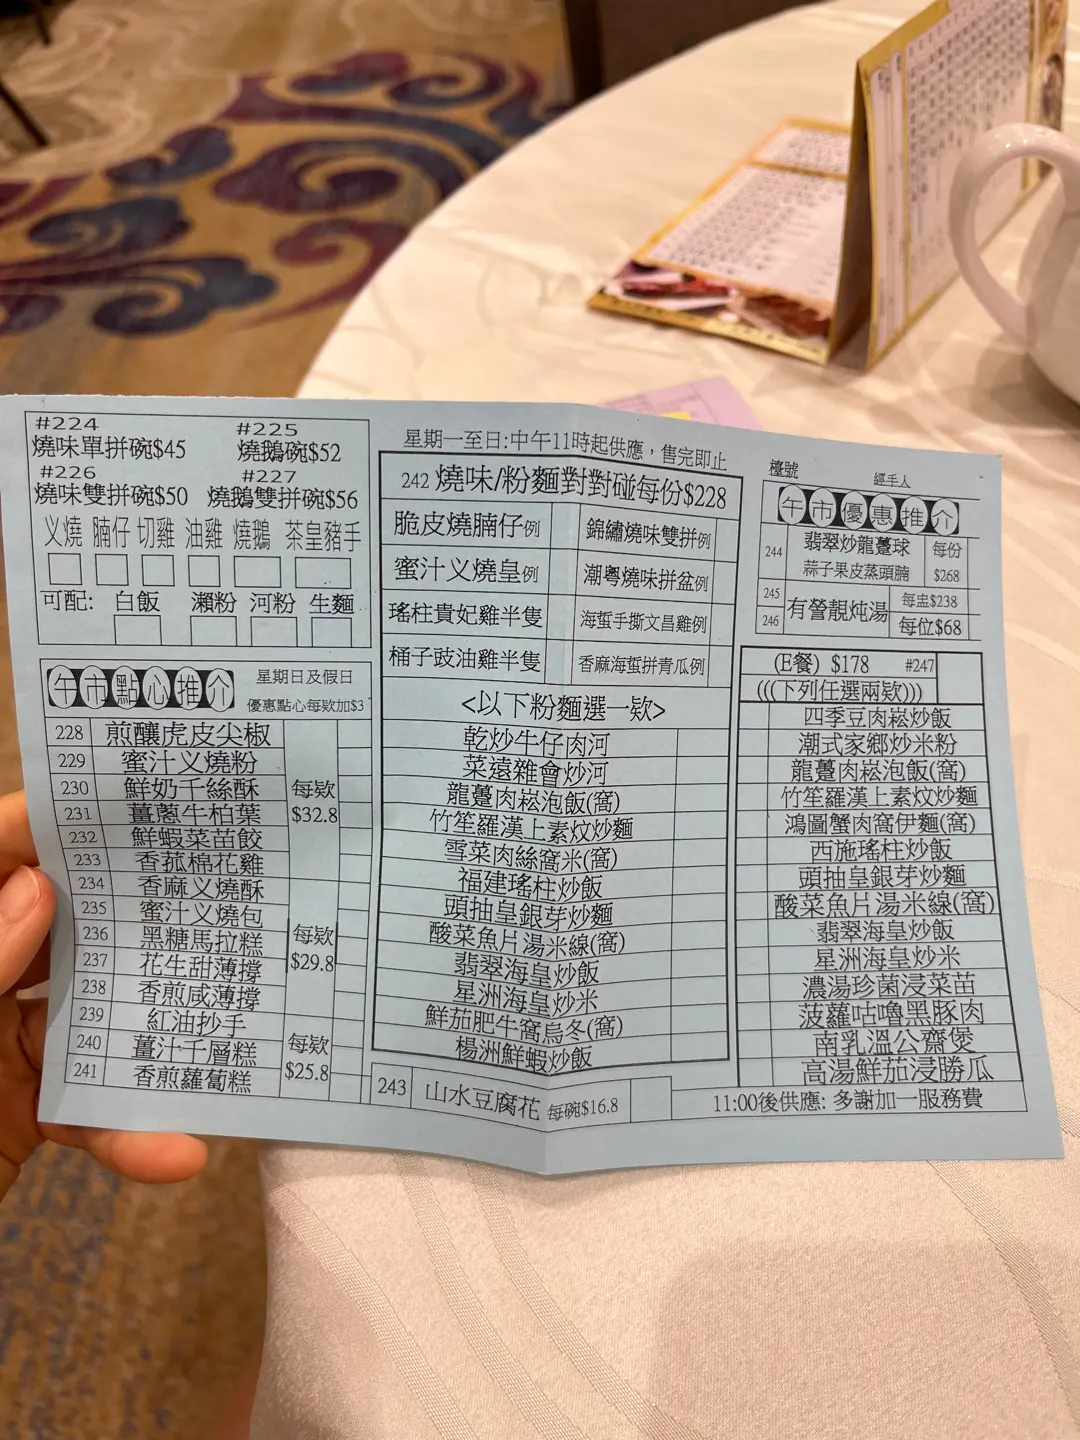 #224
燒味單拼碗$45
#225
燒鵝碗$52
#226
燒味雙拼碗$50
#227
燒鵝雙拼碗$56
义燒 腩仔 切雞 油雞 燒鵝 茶皇豬手
可配: 白飯 瀨粉 河粉 生麵
午市點心推介
星期日及假日
優惠點心每欵加$3
228 煎釀虎皮尖椒
229 蜜汁义燒粉
230 鮮奶千絲酥
231 薑蔥牛柏葉
232 鮮蝦菜苗餃
233 香菰棉花雞
每欵
$32.8
234 香麻义燒酥
235 蜜汁义燒包
236 黑糖馬拉糕
237 花生甜薄撐
238 香煎咸薄撐
每欵
$29.8
239 紅油抄手
240 薑汁千層糕
241 香煎蘿蔔糕
每欵
$25.8
星期一至日:中午11時起供應，售完即止
242 燒味/粉麵對對碰每份$228
脆皮燒腩仔例
錦繡燒味雙拼例
蜜汁义燒皇例
潮粵燒味拼盆例
瑤柱貴妃雞半隻
海蜇手撕文昌雞例
桶子豉油雞半隻
香麻海蜇拼青瓜例
<以下粉麵選一欵>
乾炒牛仔肉河
菜遠雜會炒河
龍躉肉崧泡飯(窩)
竹笙羅漢上素炆炒麵
雪菜肉絲窩米(窩)
福建瑤柱炒飯
頭抽皇銀芽炒麵
酸菜魚片湯米線(窩)
翡翠海皇炒飯
星洲海皇炒米
鮮茄肥牛窩烏冬(窩)
楊洲鮮蝦炒飯
243 山水豆腐花 每碗$16.8
檯號
經手人
午市優惠推介
244 翡翠炒龍躉球
蒜子果皮蒸頭腩
每份
$268
245
246
有營靚炖湯
每盅$238
每位$68
(E餐) $178 #247
(((下列任選兩欵)))
四季豆肉崧炒飯
潮式家鄉炒米粉
龍躉肉崧泡飯(窩)
竹笙羅漢上素炆炒麵
鴻圖蟹肉窩伊麵(窩)
西施瑤柱炒飯
頭抽皇銀芽炒麵
酸菜魚片湯米線(窩)
翡翠海皇炒飯
星洲海皇炒米
濃湯珍菌浸菜苗
菠蘿咕嚕黑豚肉
南乳溫公齋煲
高湯鮮茄浸勝瓜
11:00後供應: 多謝加一服務費